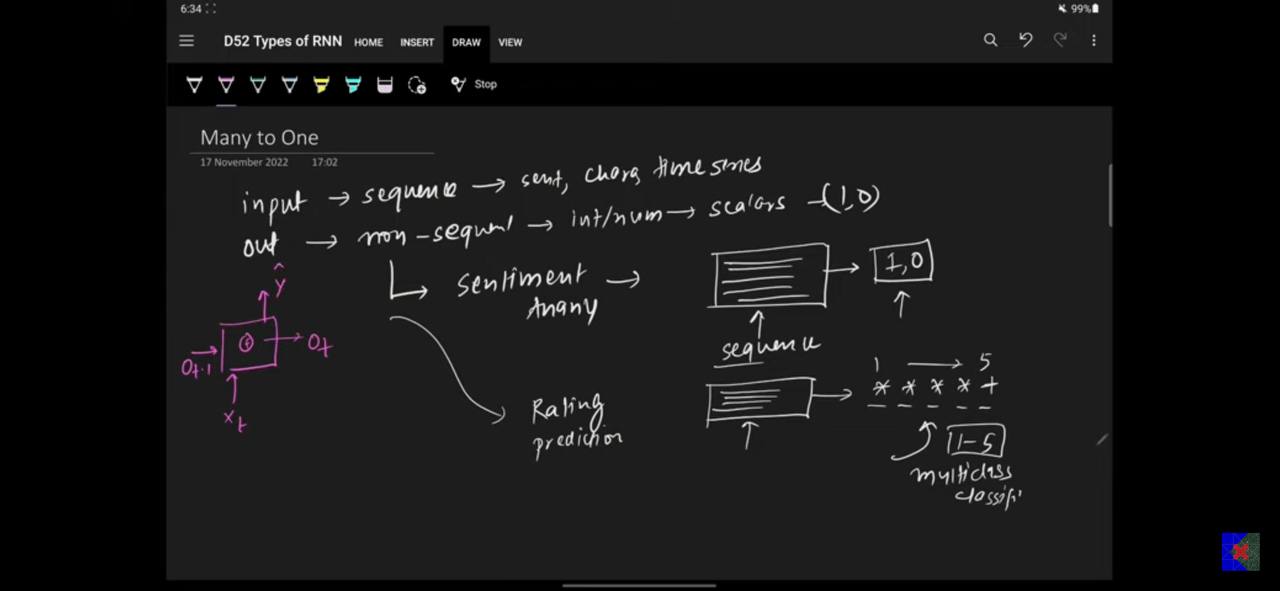 6:34
99%
D52 Types of RNN HOME INSERT DRAW VIEW
Stop
Many to One
17 November 2022 17:02
input → sequence → sent, chara, time series
out → non-sequent → int/num → scalars -(1,0)
ŷ
Sentiment →
→ 1,0
sequence
Ot-1
→ Ot
xt
1 → 5
* * * * +
Rating
prediction
1-5
multiclass
classifi